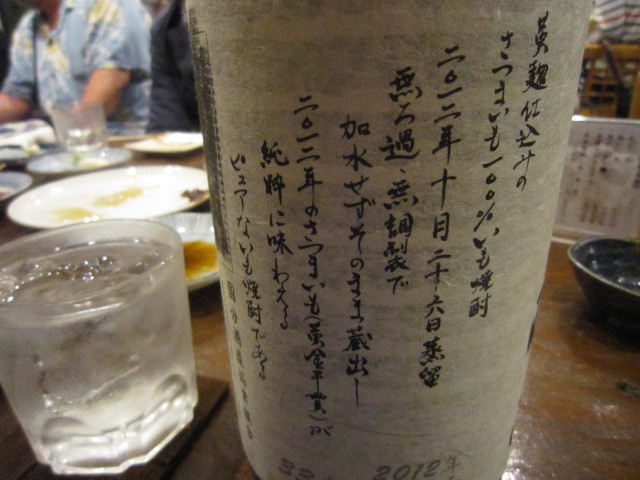 黄麹仕込みの
さつまいも一〇〇%いも焼酎
二〇一二年十月二十六日蒸留
無ろ過、無調製で
加水せずそのまま蔵出し
二〇一二年のさつまいも(黄金千貫)が
純粋に味わえる
ピュアないも焼酎である
2012年